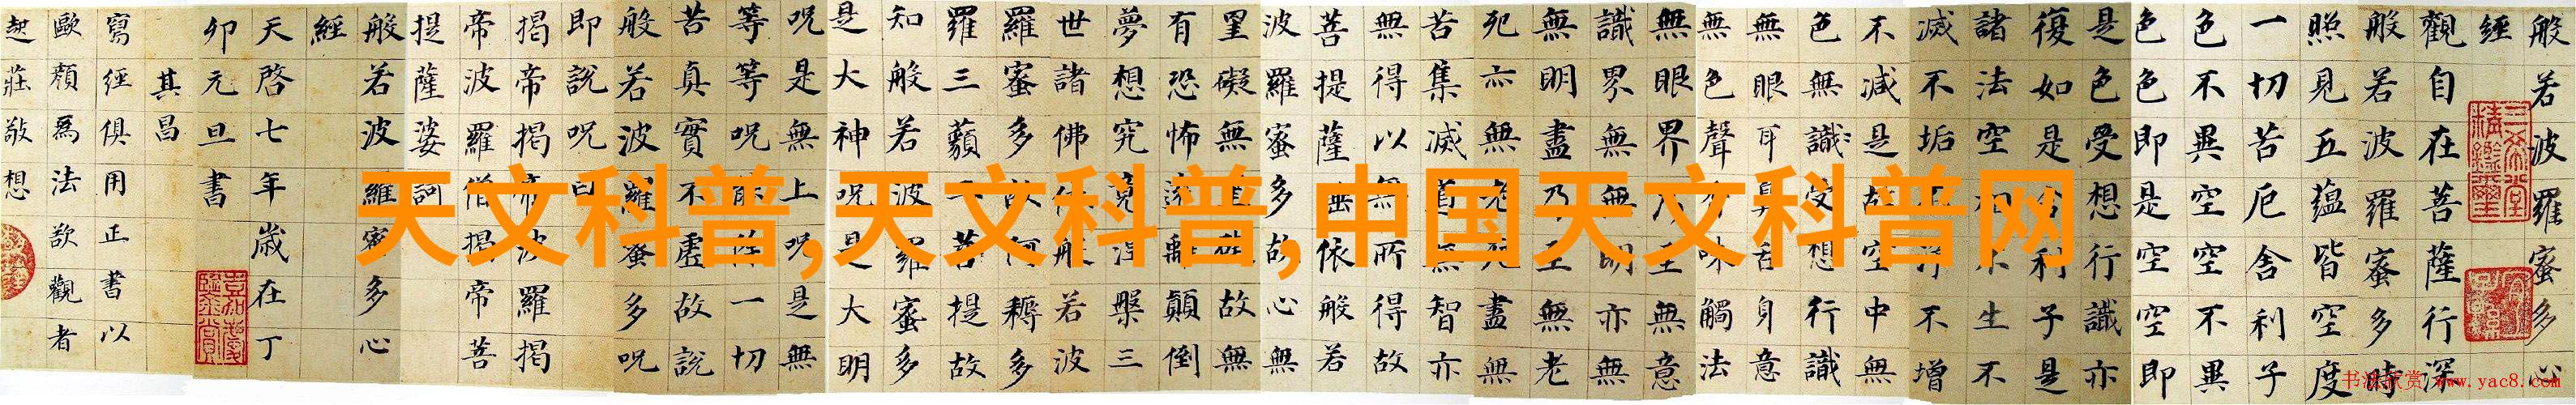 天文科普,天文科普,中国天文科普网
般若波羅蜜多心
經
觀自在菩薩行深
般若波羅蜜多時
照見五蘊皆空度
一切苦厄舍利子
色不異空空不異
色色即是空空即
是色受想行識亦
復如是舍利子是
諸法空相不生不
滅不垢不淨不增
不減是故空中無
色無識受想行識
無眼耳鼻舌身意
無色聲香味觸法
無眼界乃至無意
識界無無明亦無
無明盡乃至無老
死亦無老死盡無
苦集滅道無智亦
無得以無所得故
菩提薩埵依般若
波羅蜜多故心無
罣礙無罣礙故無
有恐怖遠離顛倒
夢想究竟涅槃三
世諸佛依般若波
羅蜜多故阿耨多
羅三藐三菩提故
知般若波羅蜜多
是大神呪是大明
呪是無上呪是無
等等呪能除一切
苦真實不虛故說
般若波羅蜜多呪
即說呪曰
揭帝揭帝波羅揭
帝波羅僧揭帝菩
提薩婆訶
般若波羅蜜多心
經
天啓七年歲在丁
卯元旦書
其昌
寫經俱用正書以
歐顏爲法欲觀者
起莊敬想
书法欣赏 www.yac8.com